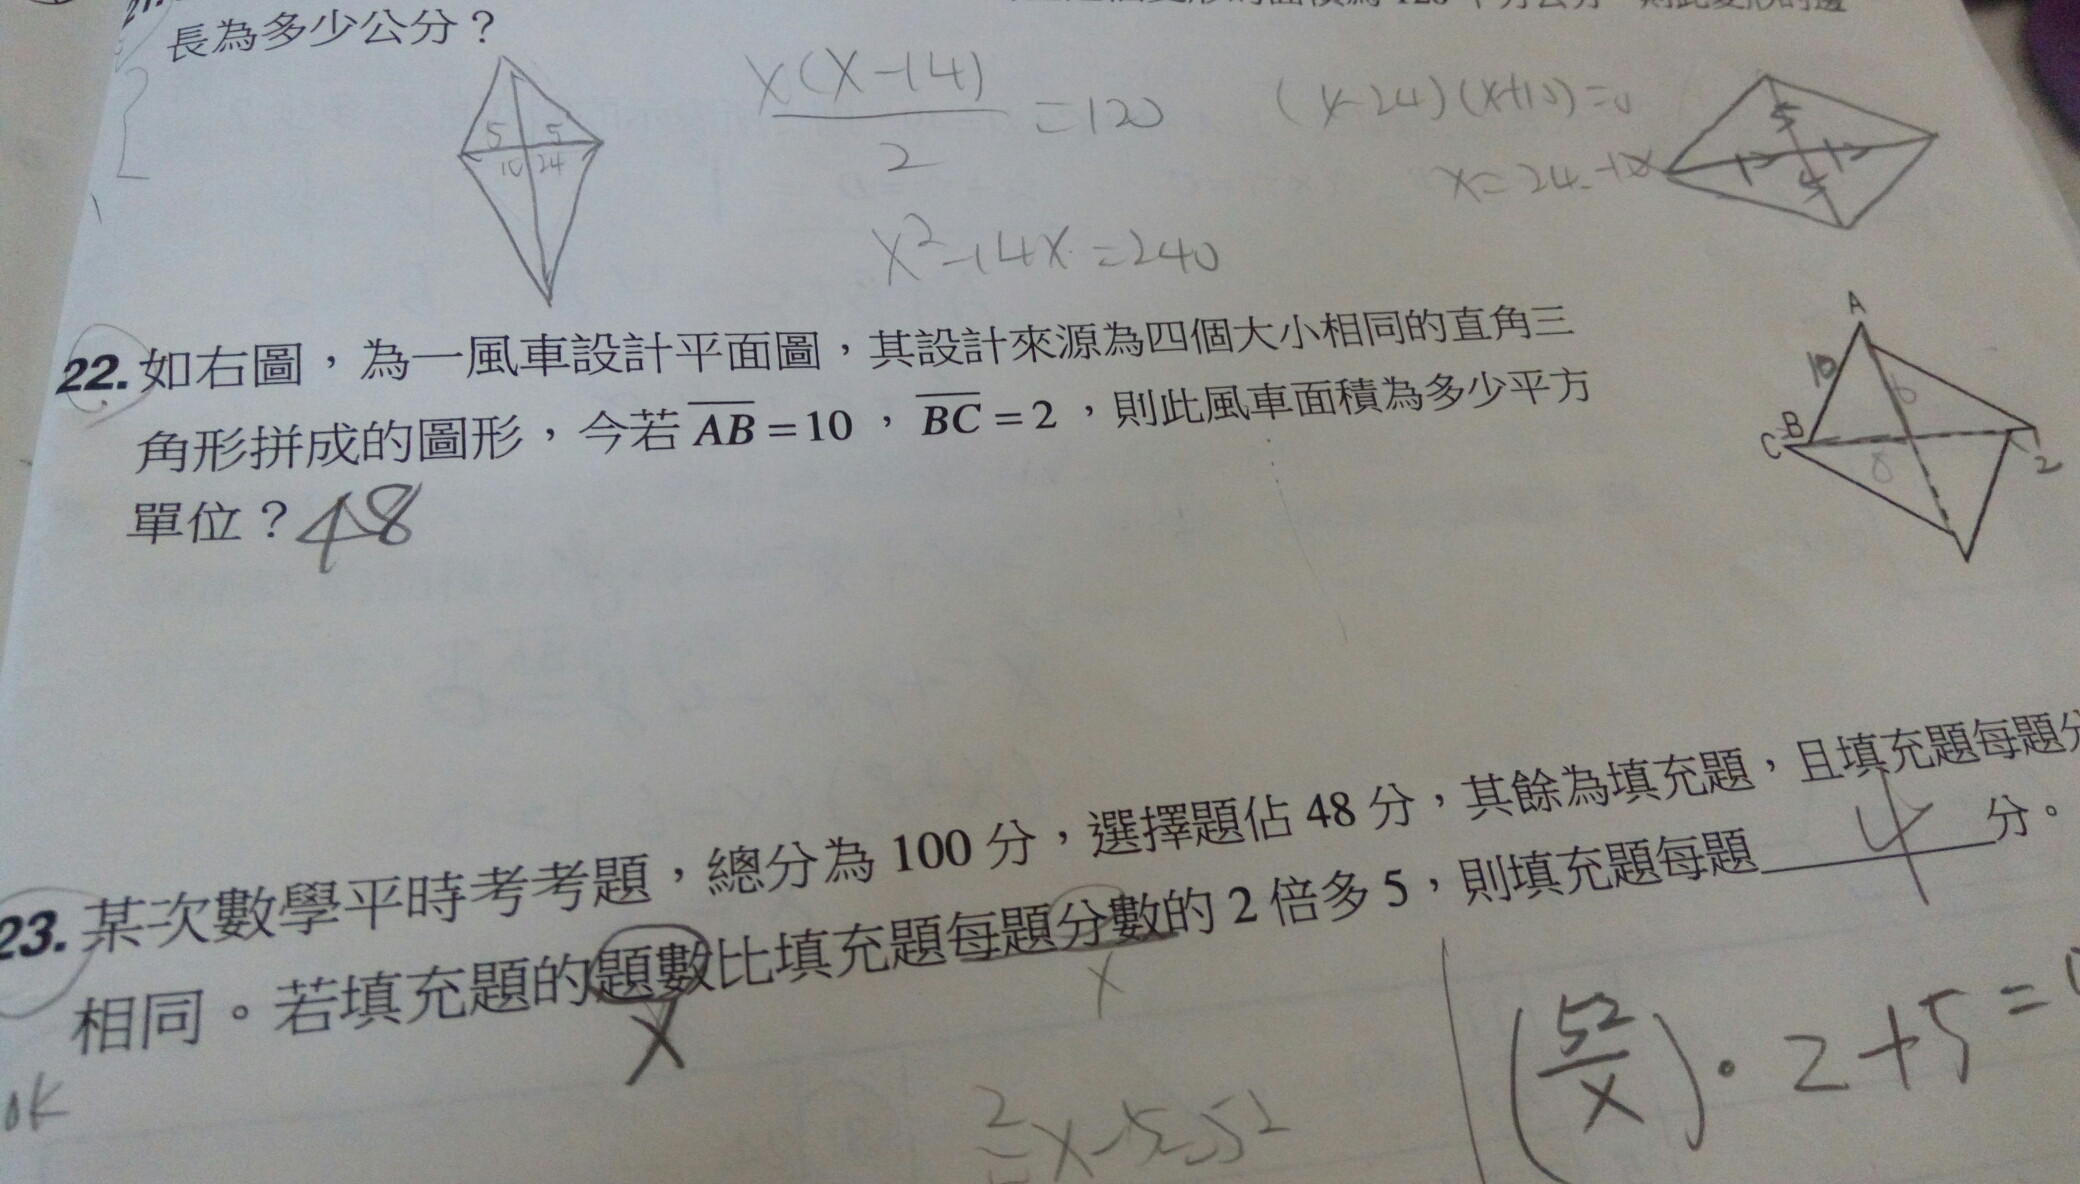 長為多少公分？
5 5
10 24
x(x-14)
2
=120
(x-24)(x+10)=0
x=24
x²-14x=240
22. 如右圖，為一風車設計平面圖，其設計來源為四個大小相同的直角三
角形拼成的圖形，今若 AB = 10 ， BC = 2 ，則此風車面積為多少平方
單位？48
A
10
6
B
C
8
2
23. 某次數學平時考考題，總分為 100 分，選擇題佔 48 分，其餘為填充題，且填充題每題
相同。若填充題的題數比填充題每題分數的 2 倍多 5，則填充題每題 4 分。
x
x
ok
(52/x)·2+5=